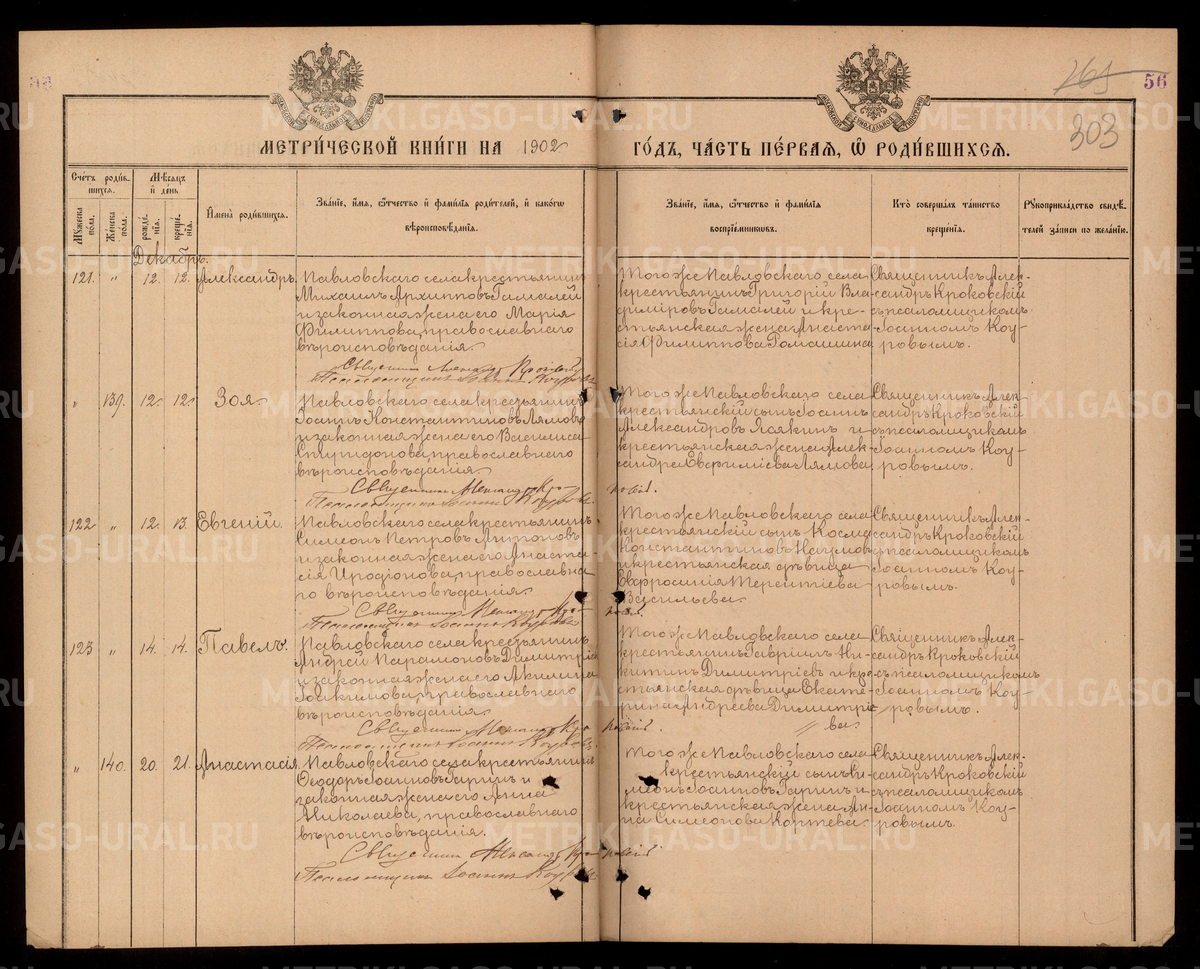 56
263
303
МЕТРИ́ЧЕСКОЙ КНИ́ГИ НА 1902 ГО́ДЪ, ЧА́СТЬ ПЕ́РВАЯ, Ѽ РОДИ́ВШИХСѦ.
Счетъ родив-
шихся.
Мужеска пола.
Женска пола.
Мѣсяцъ и день
рожде-
нія.
креще-
нія.
Имена родившихся.
Званіе, имя, отчество и фамилія родителей, и какого
вѣроисповѣданія.
Званіе, имя, отчество и фамилія
воспріемниковъ.
Кто совершалъ таинство
крещенія.
Рукоприкладство свидѣ-
телей записи по желанію.
Декабрь.
121. " 12. 12. Александръ.
Павловскаго села крестьянинъ
Михаилъ Архиповъ Гамалей
и законная жена его Марія
Филиппова, православнаго
вѣроисповѣданія.
Священникъ Александръ Кроковскій
Псаломщикъ Іоаннъ Коуровъ
Того же Павловскаго села
крестьянинъ Григорій Вла-
диміровъ Гамалей и кре-
стьянская жена Анаста-
сія Филиппова Ромашина
Священникъ Алек-
сандръ Кроковскій
съ псаломщикомъ
Іоанномъ Коу-
ровымъ.
" 139. 12. 12. Зоя.
Павловскаго села крестьянинъ
Іоаннъ Константиновъ Лямовъ
и законная жена его Васснса
Спиридонова, православнаго
вѣроисповѣданія.
Священникъ Александръ Кроковскій.
Псаломщикъ Іоаннъ Коуровъ.
Того же Павловскаго села
крестьянскій сынъ Іоаннъ
Александровъ и
крестьянская жена Алек-
сандра Евфиміева Лямова.
Священникъ Алек-
сандръ Кроковскій
съ псаломщикомъ
Іоанномъ Коу-
ровымъ.
122 " 12. 13. Евгеній.
Павловскаго села крестьянинъ
Симеонъ Петровъ
и законная жена его Анаста-
сія Иродіонова, православна-
го вѣроисповѣданія.
Священникъ Александръ Кроковскій.
Псаломщикъ Іоаннъ Коуровъ
Того же Павловскаго села
крестьянскій сынъ Косма
Константиновъ Наумовъ
и крестьянская дѣвица
Евфросинія Терентіева
Васильева.
Священникъ Алек-
сандръ Кроковскій
съ псаломщикомъ
Іоанномъ Коу-
ровымъ.
123 " 14. 14. Павелъ.
Павловскаго села крестьянинъ
Андрей Парамоновъ Димитріевъ
и законная жена его Акилина
Іоакимова, православнаго
вѣроисповѣданія.
Священникъ Александръ Кроковскій
Псаломщикъ Іоаннъ Коуровъ.
Того же Павловскаго села
крестьянинъ Гавріилъ Ни-
китинъ Димитріевъ и кре-
стьянская дѣвица Екате-
рина Андреева Димитріе-
ва.
Священникъ Алек-
сандръ Кроковскій
съ псаломщикомъ
Іоанномъ Коу-
ровымъ.
" 140. 20. 21. Анастасія.
Павловскаго села крестьянинъ
Ѳеодоръ Іоанновъ Гаринъ и
законная жена его Анна
Николаева, православнаго
вѣроисповѣданія.
Священникъ Александръ Кроковскій
Псаломщикъ Іоаннъ Коуровъ.
Того же Павловскаго села
крестьянскій сынъ Си-
меонъ Іоанновъ Гаринъ и
крестьянская жена Ан-
на Симеонова Коптева.
Священникъ Алек-
сандръ Кроковскій
съ псаломщикомъ
Іоанномъ Коу-
ровымъ.
METRIKI.GASO-URAL.RU